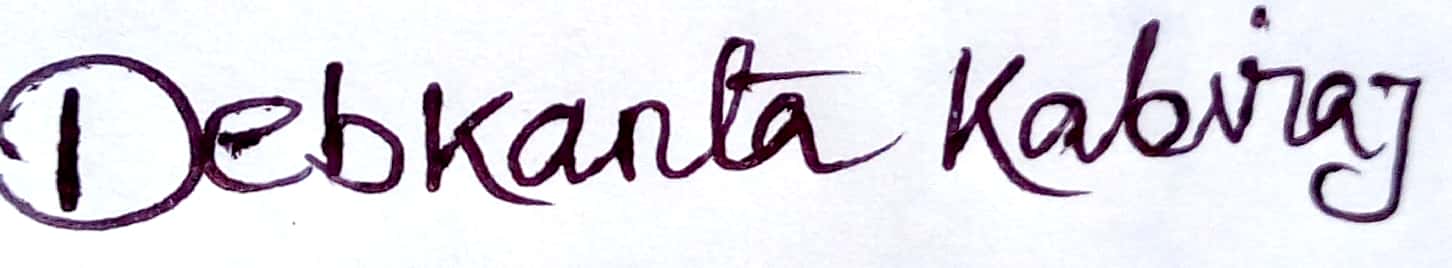 Debkanta Kabiraj